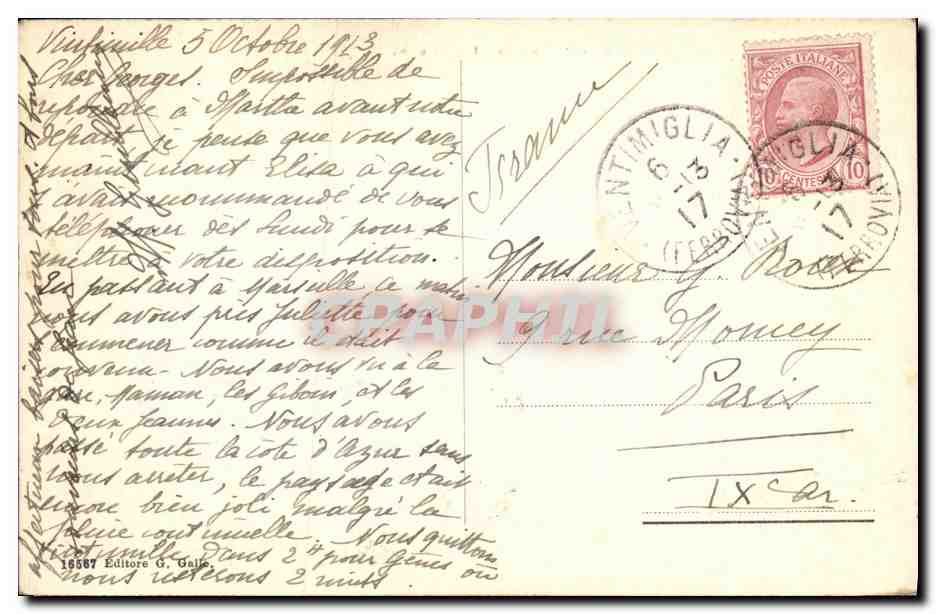 Vintimille 5 Octobre 1913
Cher Georges. Impossible de
repondre à Martha avant notre
départ, je pense que vous avez
maintenant Elisa à qui
j'avais recommandé de vous
téléphoner dès Lundi pour se
mettre à votre disposition.
En passant à Marseille ce matin
nous avons pris Juliette pour
l'emmener comme c'était
convenu. Nous avons vu à la
gare, Maman, les Giboin, et les
deux Jeannes. Nous avons
passé toute la côte d'Azur sans
nous arrêter, le paysage était
bien joli malgré la
pluie continuelle. Nous quittons
Vintimille dans 2h pour Gênes où
nous resterons 2 nuits.
Affectueux baisers pour vous à tous
16567 Editore G. Galle.
France
Monsieur G.
9 rue Momcy
Paris
IXe ar.
POSTE ITALIANE
10 CENTESIMI 10
VENTIMIGLIA
6 13
17
(FERROVIA)
VENTIMIGLIA
13
17
(FERROVIA)
CPAPHIL